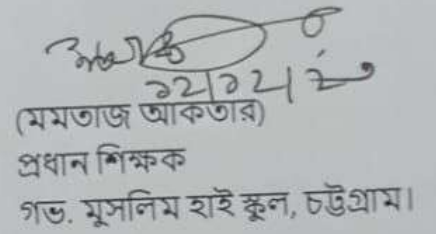 ১২|১২|২৩
(মমতাজ আকতার)
প্রধান শিক্ষক
গভ. মুসলিম হাই স্কুল, চট্টগ্রাম।